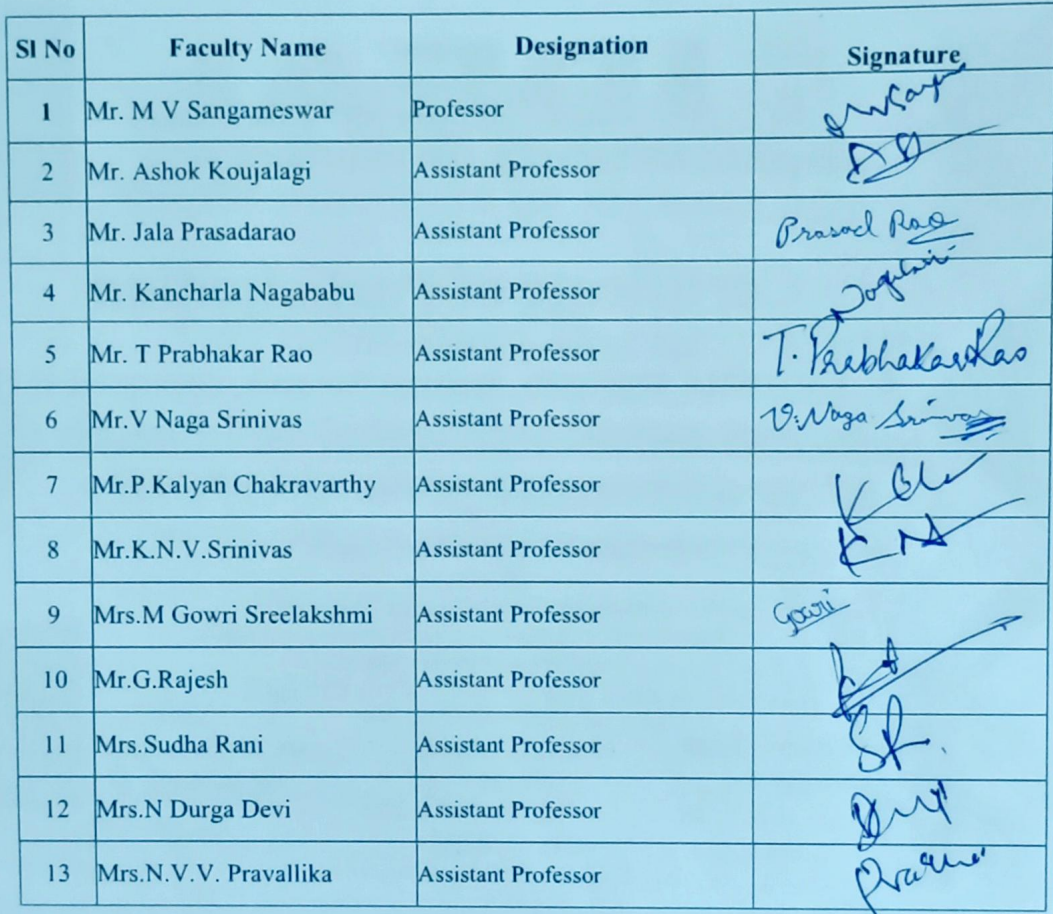 Sl No Faculty Name Designation Signature
1 Mr. M V Sangameswar Professor
2 Mr. Ashok Koujalagi Assistant Professor
3 Mr. Jala Prasadarao Assistant Professor Prasad Rao
4 Mr. Kancharla Nagababu Assistant Professor
5 Mr. T Prabhakar Rao Assistant Professor T. Prabhakar Rao
6 Mr.V Naga Srinivas Assistant Professor V. Naga Srinivas
7 Mr.P.Kalyan Chakravarthy Assistant Professor
8 Mr.K.N.V.Srinivas Assistant Professor
9 Mrs.M Gowri Sreelakshmi Assistant Professor Gowri
10 Mr.G.Rajesh Assistant Professor
11 Mrs.Sudha Rani Assistant Professor SR.
12 Mrs.N Durga Devi Assistant Professor
13 Mrs.N.V.V. Pravallika Assistant Professor